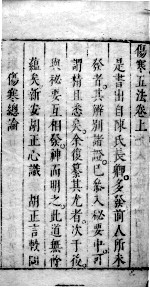 傷寒五法卷上
是書出自陳氏長卿多發前人所未
發者其辨別諸證已暴入秘要中可
謂精且悉矣余復纂其尤者次于後
與祕要互相發神而明之此道無餘
蘊矣新安胡正心識　胡正言較閱
傷寒總論